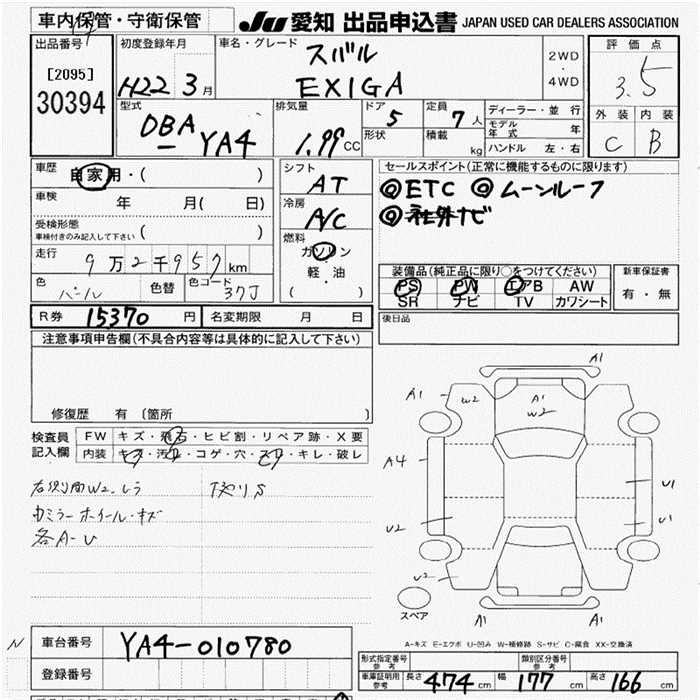 車内保管・守衛保管
JU 愛知 出品申込書 JAPAN USED CAR DEALERS ASSOCIATION
出品番号 初度登録年月 車名・グレード 評価点
[2095] スバル 2WD ・ 4WD
30394 H22 3月 EXIGA 3.5
型式 排気量 ドア 定員 ディーラー・並行 外装 内装
DBA - YA4 1.99 CC 5 7人 モデル年式 年 C B
形状 積載 kg ハンドル 左・右
車歴 自家用・( ) シフト セールスポイント(正常に機能するものに限ります)
AT ◎ETC ◎ムーンルーフ
車検 年 月( 日) 冷房 ◎社外ナビ
A/C
受検形態
車検付きのみ記入して下さい ( ) 燃料
走行 9万2千957km ガソリン 装備品(純正品に限り○をつけてください) 新車保証書
色 パール 色替 色コード 37J 軽・油 PS PW エアB AW 有・無
( ) SR ナビ TV カワシート
R券 15370円 名変期限 月 日 後日品
注意事項申告欄(不具合内容等は具体的に記入して下さい)
A1
A1 W2 A1 W2
修復歴 有 〔箇所 〕
検査員 FW キズ・飛石・ヒビ割・リペア跡・X要
記入欄 内装 キズ・汚れ・コゲ・穴・スレ・キレ・破レ
A4
U1
U2 U1
ホイール・キズ
各A-U
U2
スペア A1 A1
A-キズ E-エクボ U-凹み W-補修跡 S-サビ C-腐食 XX-交換済
N 車台番号 YA4-010780
形式指定番号 参考 類別区分番号 参考
登録番号 車庫証明用 参考 長さ 474cm 幅 177cm 高さ 166cm